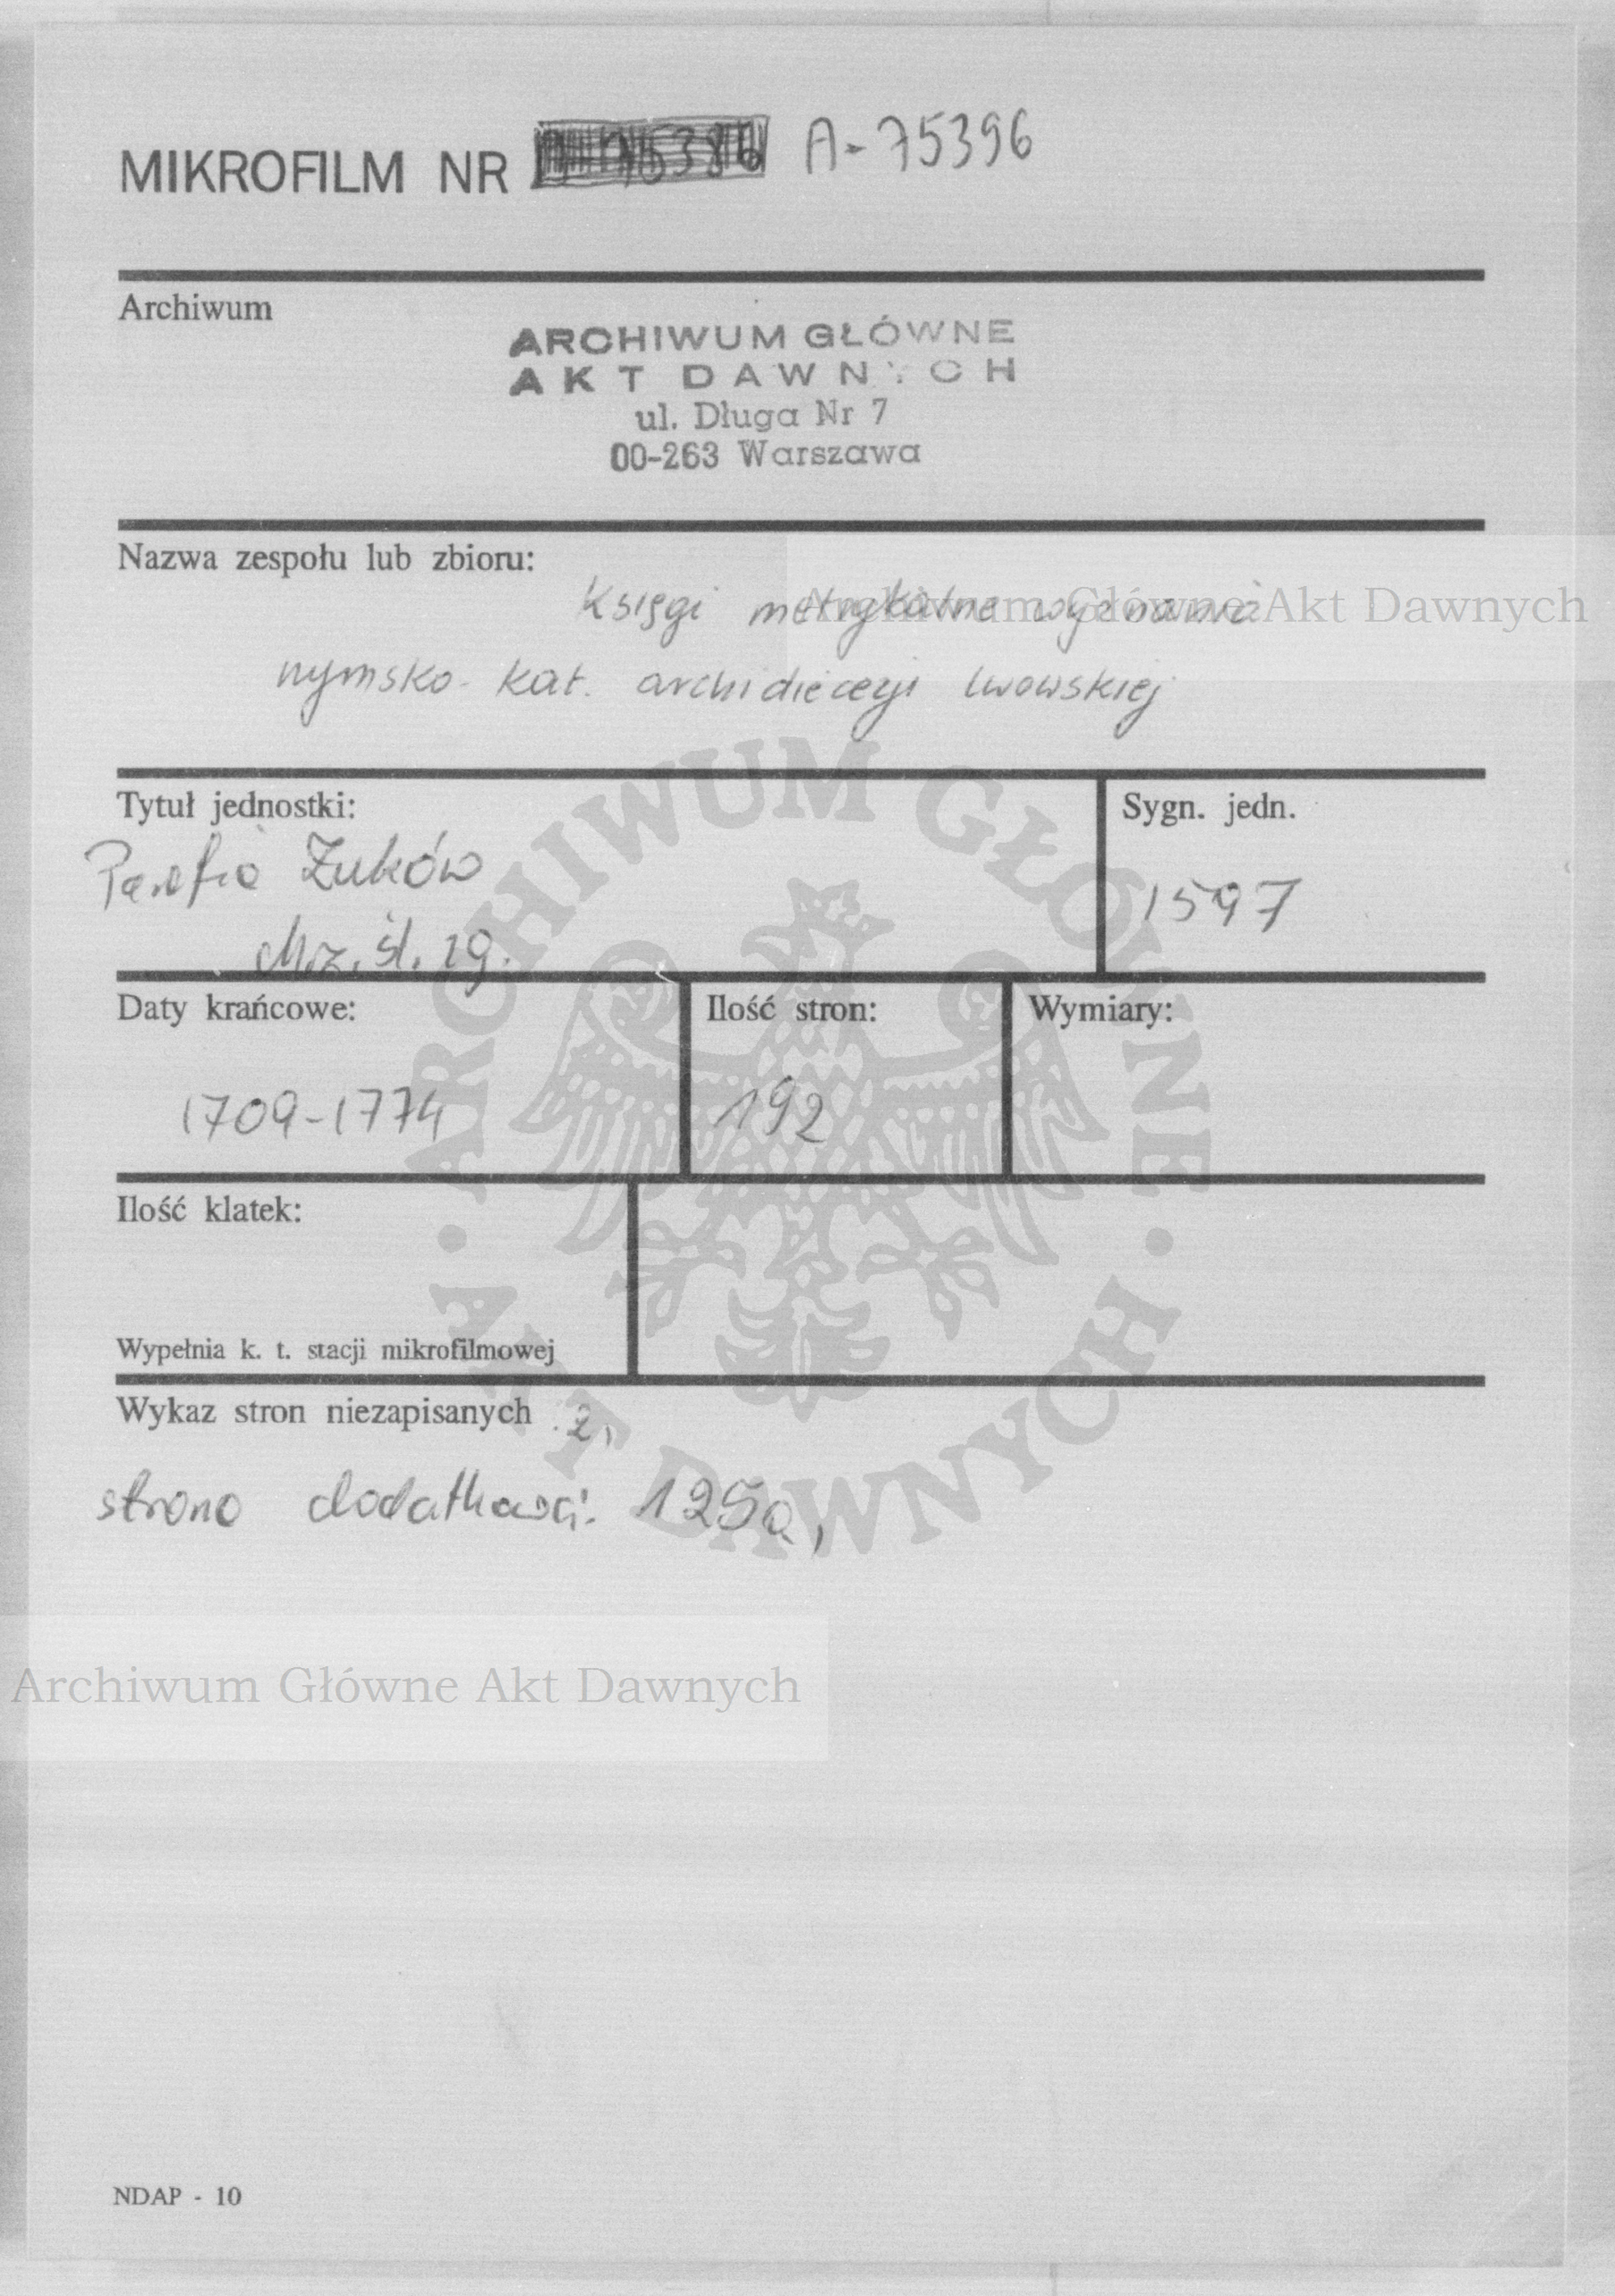 MIKROFILM NR A-75396
Archiwum
ARCHIWUM GŁÓWNE
AKT DAWNYCH
ul. Długa Nr 7
00-263 Warszawa
Nazwa zespołu lub zbioru:
Księgi metrykalne wyznania
Archiwum Główne Akt Dawnych
rzymsko-kat. archidiecezji lwowskiej
Tytuł jednostki:
Parafia Żuków
Sygn. jedn.
1597
Daty krańcowe:
1709-1774
Ilość stron:
192
Wymiary:
Ilość klatek:
Wypełnia k. t. stacji mikrofilmowej
Wykaz stron niezapisanych 2,
strona dodatkowa: 125a,
Archiwum Główne Akt Dawnych
NDAP - 10
ARCHIWUM GŁÓWNE · AKT DAWNYCH ·